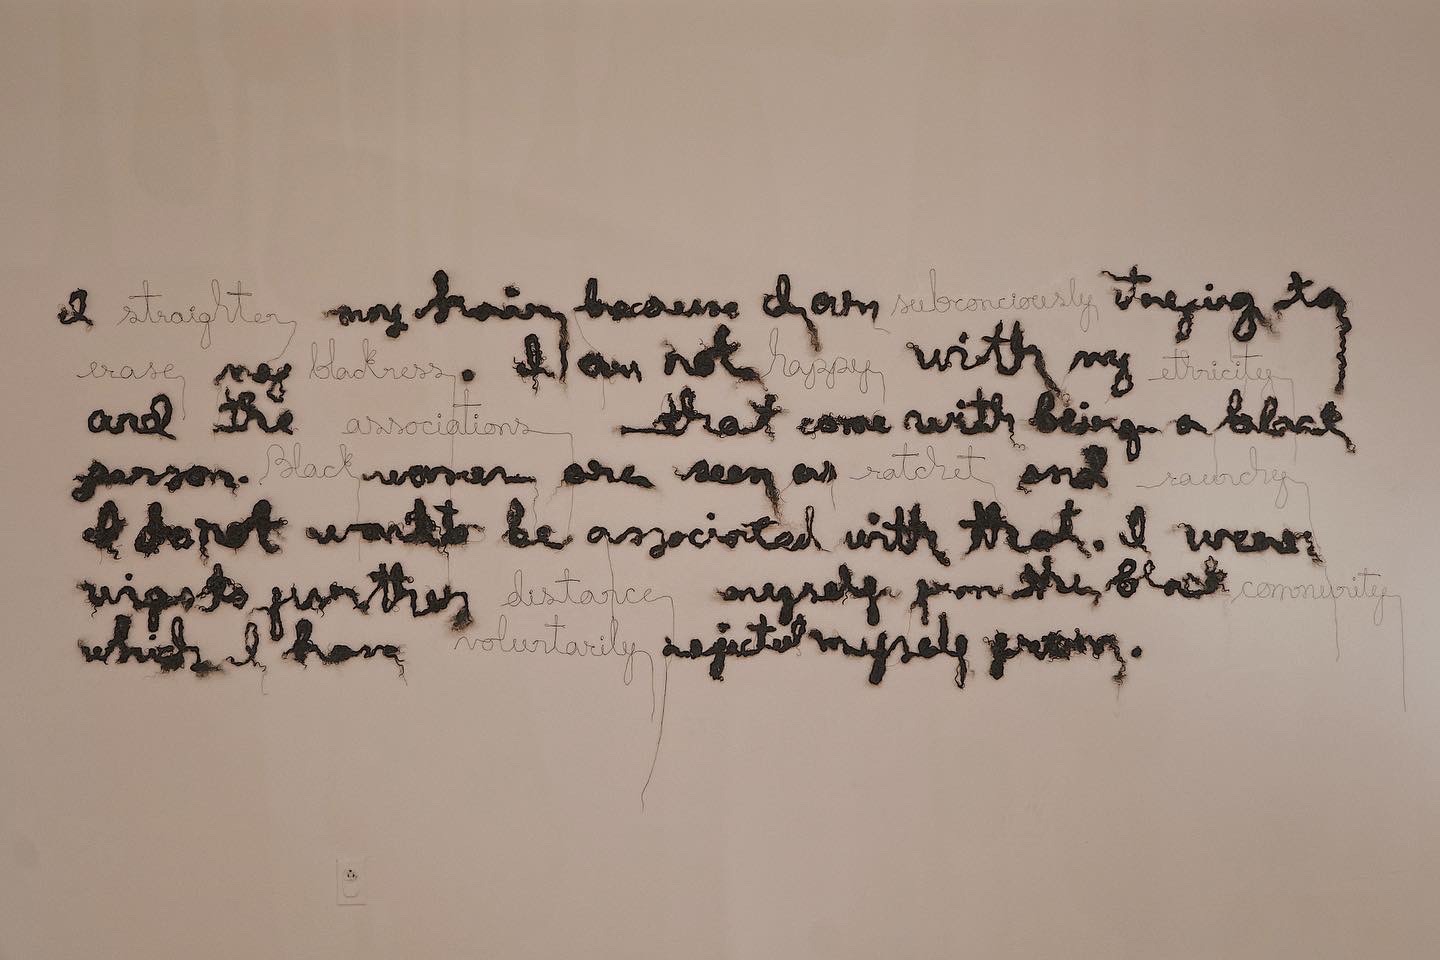 I straighten my hair because I am subconciously trying to
erase my blackness. I am not happy with my ethnicity
and the associations that come with being a black
person. Black women are seen as ratchet and raunchy
I do not want to be associated with that. I wear
wigs to further distance myself from the black community
which I have voluntarily rejected myself from.